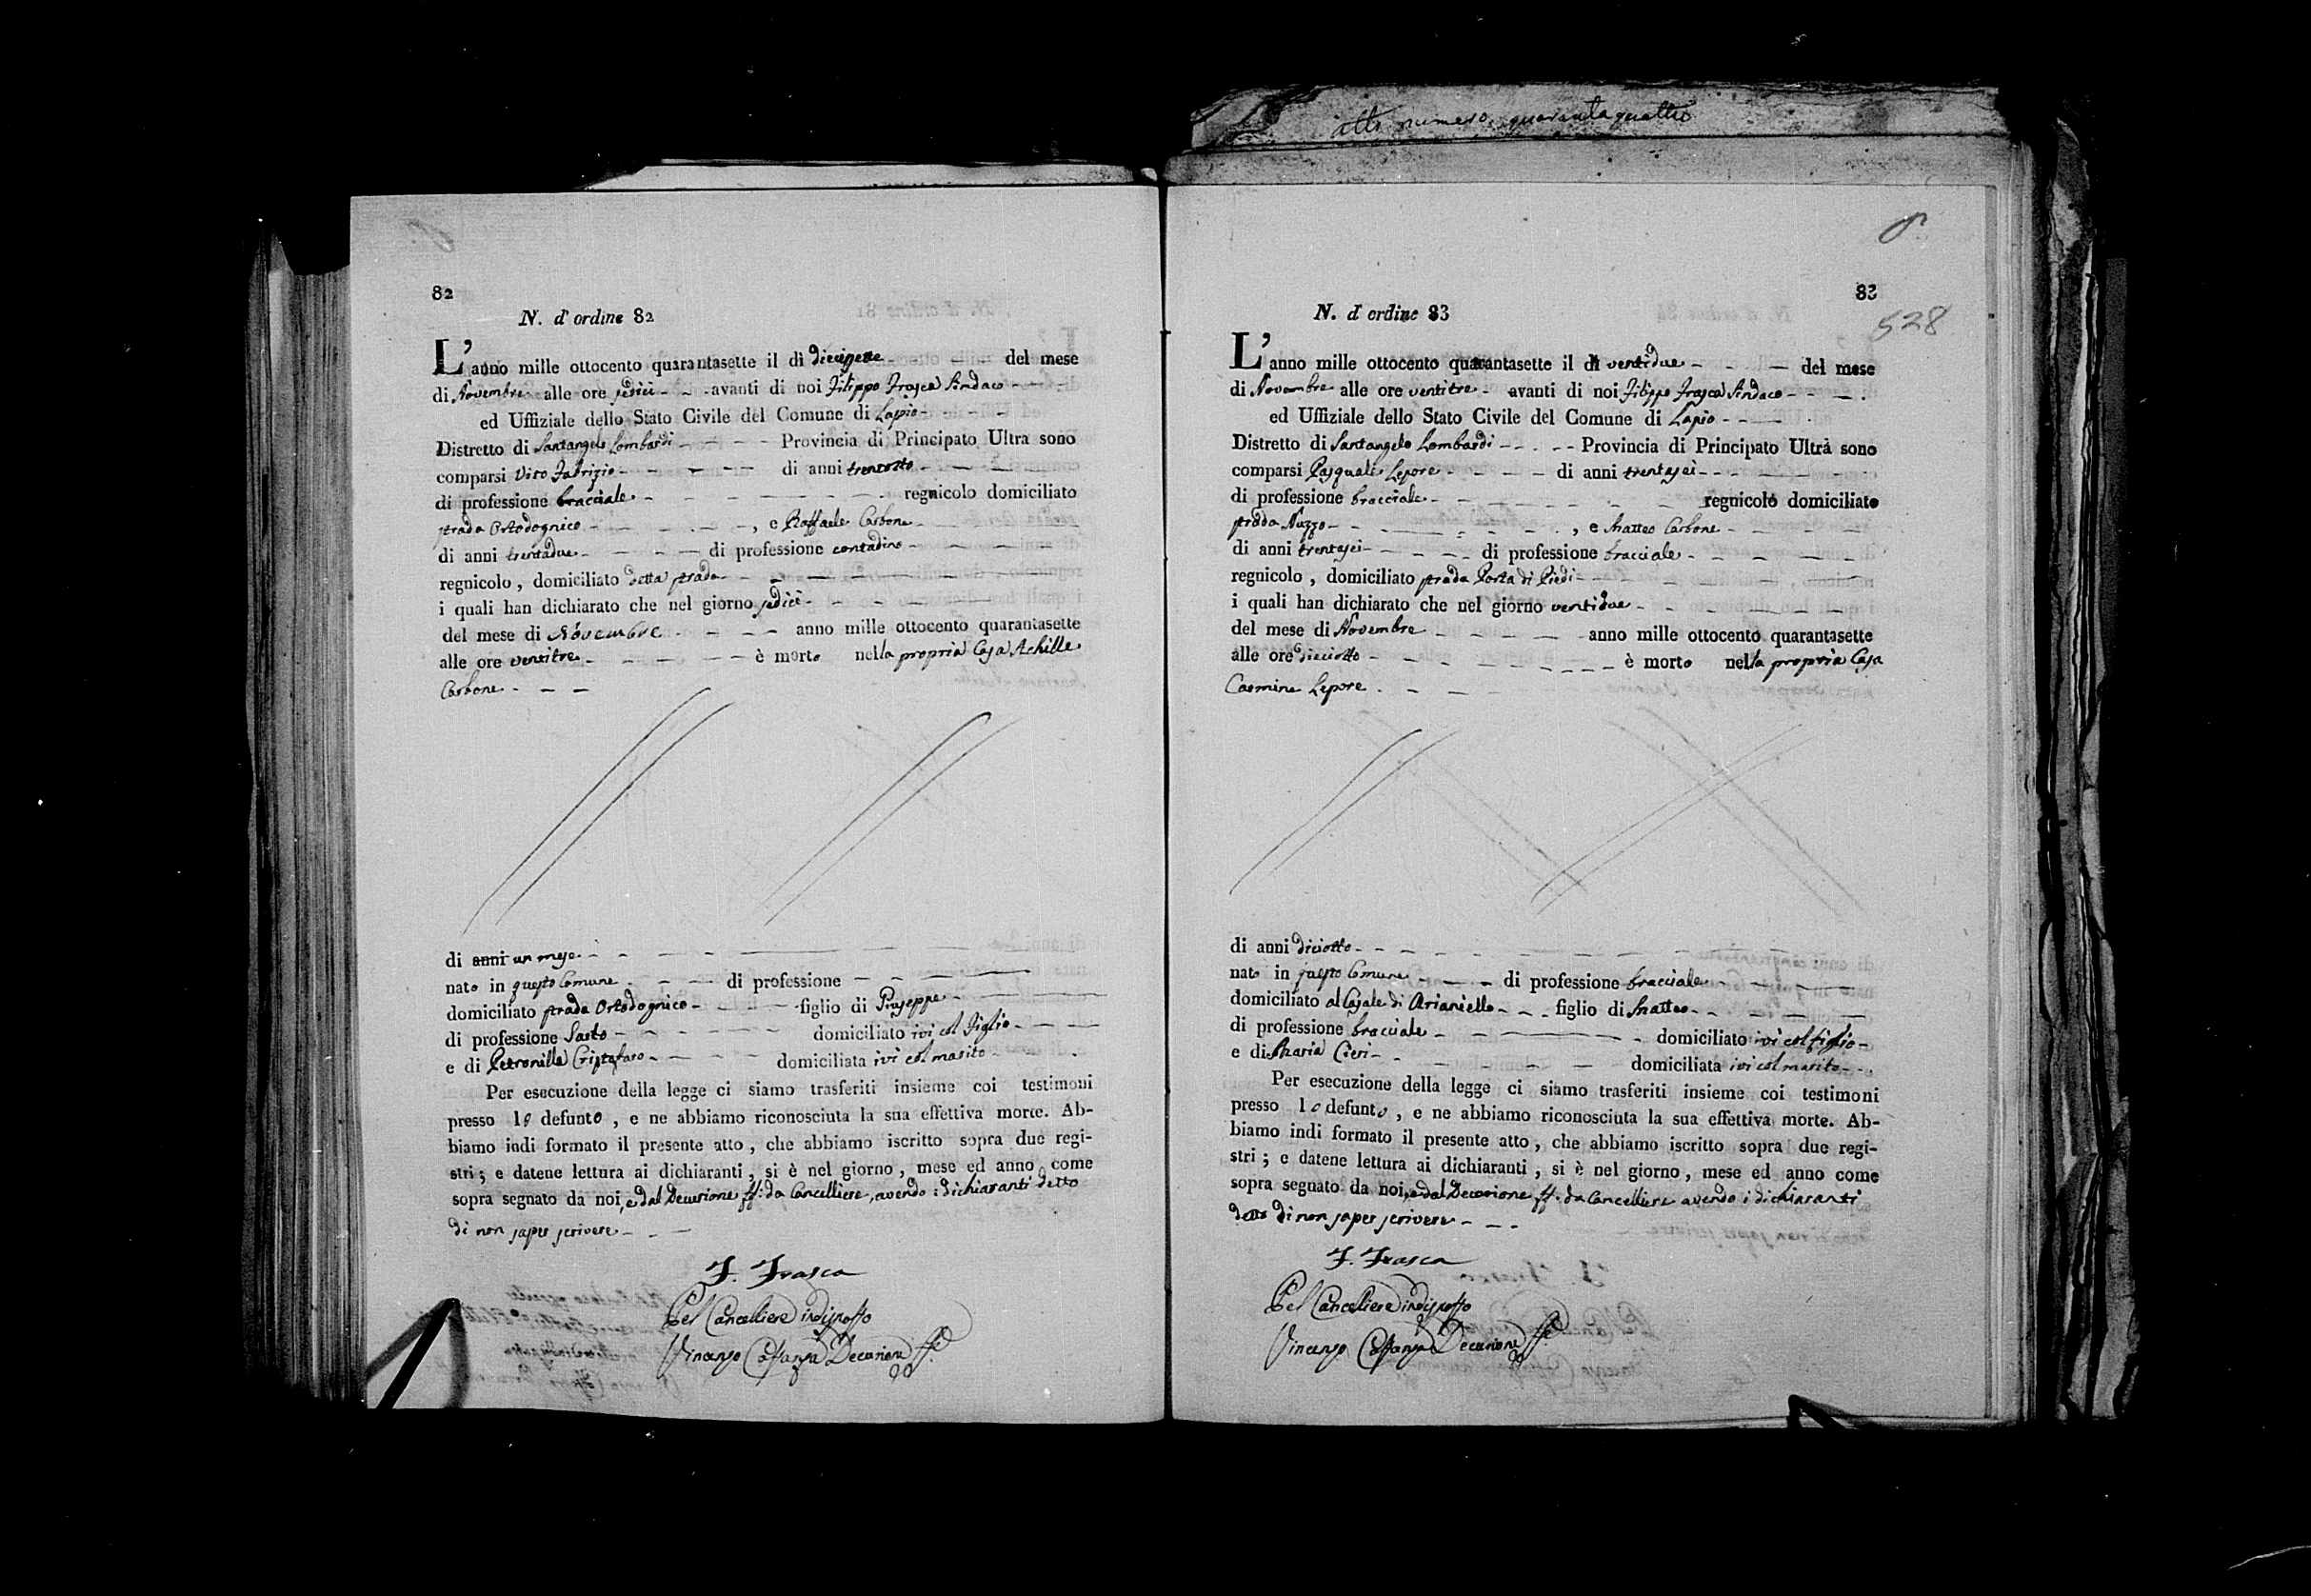 atto numero quarantaquattro
82
N. d' ordine 82
L' anno mille ottocento quarantasette il dì diecissette del mese
di Novembre alle ore sedici avanti di noi Filippo Frasca Sindaco
ed Uffiziale dello Stato Civile del Comune di Lapio
Distretto di Santangelo Lombardi Provincia di Principato Ultra sono
comparsi Vito Fabrizio di anni trentotto
di professione bracciale regnicolo domiciliato
strada Ortodognico , e Raffaele Carbone
di anni trentadue di professione contadino
regnicolo , domiciliato detta strada
i quali han dichiarato che nel giorno sedici
del mese di Novembre anno mille ottocento quarantasette
alle ore ventitre è morto nella propria Casa Achille
Carbone
di anni un mese
nato in questo Comune di professione
domiciliato strada Ortodognico figlio di Giuseppe
di professione Sarto domiciliato ivi col Figlio
e di Petronilla Cristofaro domiciliata ivi col marito
Per esecuzione della legge ci siamo trasferiti insieme coi testimoni
presso lo defunto , e ne abbiamo riconosciuta la sua effettiva morte. Ab-
biamo indi formato il presente atto , che abbiamo iscritto sopra due regi-
stri ; e datene lettura ai dichiaranti , si è nel giorno , mese ed anno come
sopra segnato da noi, e dal Decurione ff: da Cancelliere, avendo i dichiaranti detto
di non saper scrivere
F. Frasca
Pel Cancelliere indisposto
Vincenzo Decurione ff.
83
528
N. d' ordine 83
L' anno mille ottocento quarantasette il dì ventidue del mese
di Novembre alle ore ventitre avanti di noi Filippo Frasca Sindaco
ed Uffiziale dello Stato Civile del Comune di Lapio
Distretto di Santangelo Lombardi Provincia di Principato Ultra sono
comparsi Pasquale Lepore di anni trentasei
di professione bracciale regnicolo domiciliato
strada Nuzzo , e Matteo Carbone
di anni trentasei di professione bracciale
regnicolo , domiciliato strada Porta di Piedi
i quali han dichiarato che nel giorno ventidue
del mese di Novembre anno mille ottocento quarantasette
alle ore dieciotto è morto nella propria Casa
Carmine Lepore
di anni diciotto
nato in questo Comune di professione bracciale
domiciliato al Casale di Arianiello figlio di Matteo
di professione bracciale domiciliato ivi col figlio
e di Maria Cieri domiciliata ivi col marito
Per esecuzione della legge ci siamo trasferiti insieme coi testimoni
presso lo defunto , e ne abbiamo riconosciuta la sua effettiva morte. Ab-
biamo indi formato il presente atto , che abbiamo iscritto sopra due regi-
stri ; e datene lettura ai dichiaranti , si è nel giorno , mese ed anno come
sopra segnato da noi, e dal Decurione ff. da Cancelliere avendo i dichiaranti
detto di non saper scrivere
F. Frasca
Pel Cancelliere indisposto
Vincenzo Decurione ff.